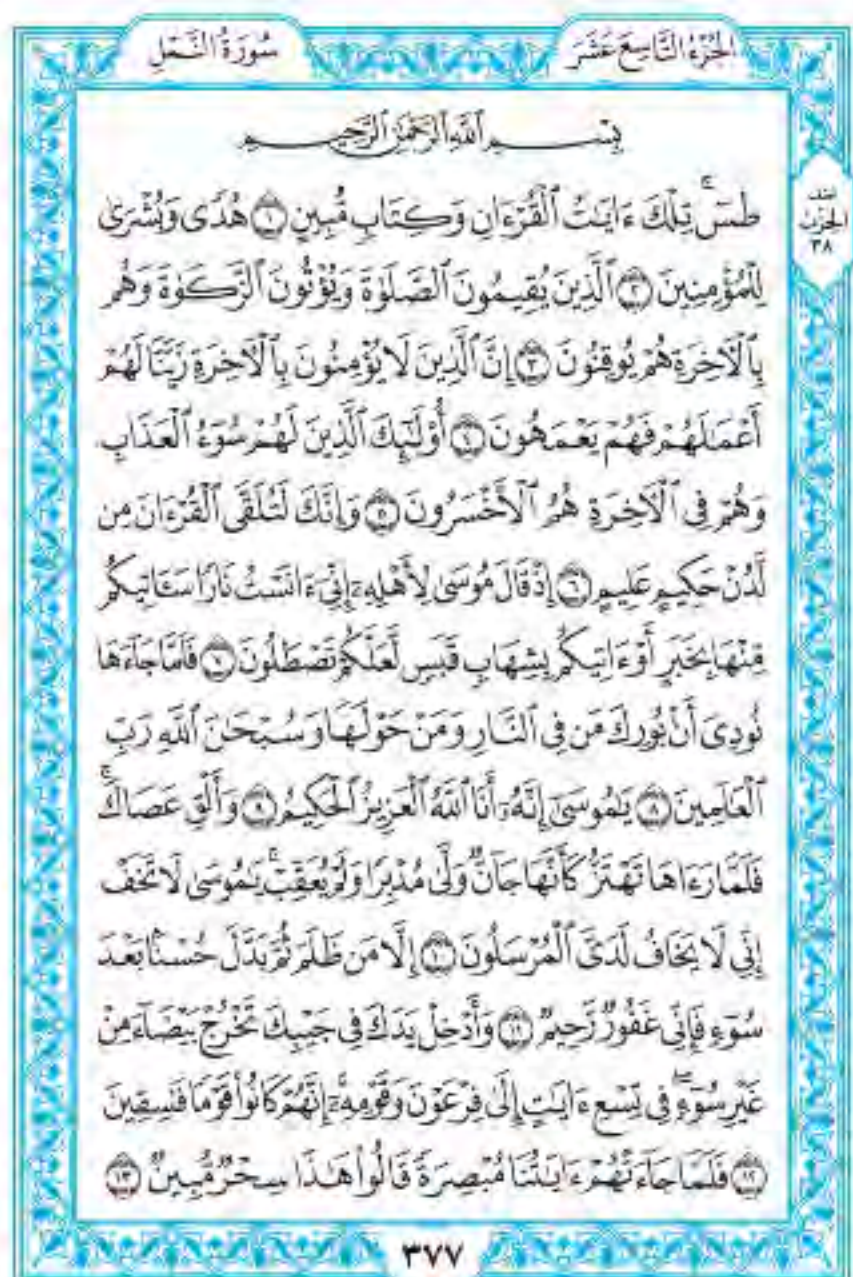 الجُزْءُ التَّاسِعَ عَشَرَ
سُورَةُ النَّمْلِ
بِسْمِ ٱللَّهِ ٱلرَّحْمَٰنِ ٱلرَّحِيمِ
طسٓۚ تِلْكَ ءَايَٰتُ ٱلْقُرْءَانِ وَكِتَابٖ مُّبِينٍ ١ هُدٗى وَبُشْرَىٰ
الحِزْبُ
٣٨
لِلْمُؤْمِنِينَ ٢ ٱلَّذِينَ يُقِيمُونَ ٱلصَّلَوٰةَ وَيُؤْتُونَ ٱلزَّكَوٰةَ وَهُم
بِٱلْأٓخِرَةِ هُمْ يُوقِنُونَ ٣ إِنَّ ٱلَّذِينَ لَا يُؤْمِنُونَ بِٱلْأٓخِرَةِ زَيَّنَّا لَهُمْ
أَعْمَٰلَهُمْ فَهُمْ يَعْمَهُونَ ٤ أُوْلَٰٓئِكَ ٱلَّذِينَ لَهُمْ سُوٓءُ ٱلْعَذَابِ
وَهُمْ فِي ٱلْأٓخِرَةِ هُمُ ٱلْأَخْسَرُونَ ٥ وَإِنَّكَ لَتُلَقَّى ٱلْقُرْءَانَ مِن
لَّدُنْ حَكِيمٍ عَلِيمٍ ٦ إِذْ قَالَ مُوسَىٰ لِأَهْلِهِۦٓ إِنِّيٓ ءَانَسْتُ نَارٗا سَـَٔاتِيكُم
مِّنْهَا بِخَبَرٍ أَوْ ءَاتِيكُم بِشِهَابٖ قَبَسٖ لَّعَلَّكُمْ تَصْطَلُونَ ٧ فَلَمَّا جَآءَهَا
نُودِيَ أَنۢ بُورِكَ مَن فِي ٱلنَّارِ وَمَنْ حَوْلَهَا وَسُبْحَٰنَ ٱللَّهِ رَبِّ
ٱلْعَٰلَمِينَ ٨ يَٰمُوسَىٰٓ إِنَّهُۥٓ أَنَا ٱللَّهُ ٱلْعَزِيزُ ٱلْحَكِيمُ ٩ وَأَلْقِ عَصَاكَۚ
فَلَمَّا رَءَاهَا تَهْتَزُّ كَأَنَّهَا جَآنّٞ وَلَّىٰ مُدْبِرٗا وَلَمْ يُعَقِّبْۚ يَٰمُوسَىٰ لَا تَخَفْ
إِنِّي لَا يَخَافُ لَدَيَّ ٱلْمُرْسَلُونَ ١٠ إِلَّا مَن ظَلَمَ ثُمَّ بَدَّلَ حُسْنَۢا بَعْدَ
سُوٓءٖ فَإِنِّي غَفُورٞ رَّحِيمٞ ١١ وَأَدْخِلْ يَدَكَ فِي جَيْبِكَ تَخْرُجْ بَيْضَآءَ مِنْ
غَيْرِ سُوٓءٖۖ فِي تِسْعِ ءَايَٰتٍ إِلَىٰ فِرْعَوْنَ وَقَوْمِهِۦٓۚ إِنَّهُمْ كَانُواْ قَوْمٗا فَٰسِقِينَ
١٢ فَلَمَّا جَآءَتْهُمْ ءَايَٰتُنَا مُبْصِرَةٗ قَالُواْ هَٰذَا سِحْرٞ مُّبِينٞ ١٣
٣٧٧